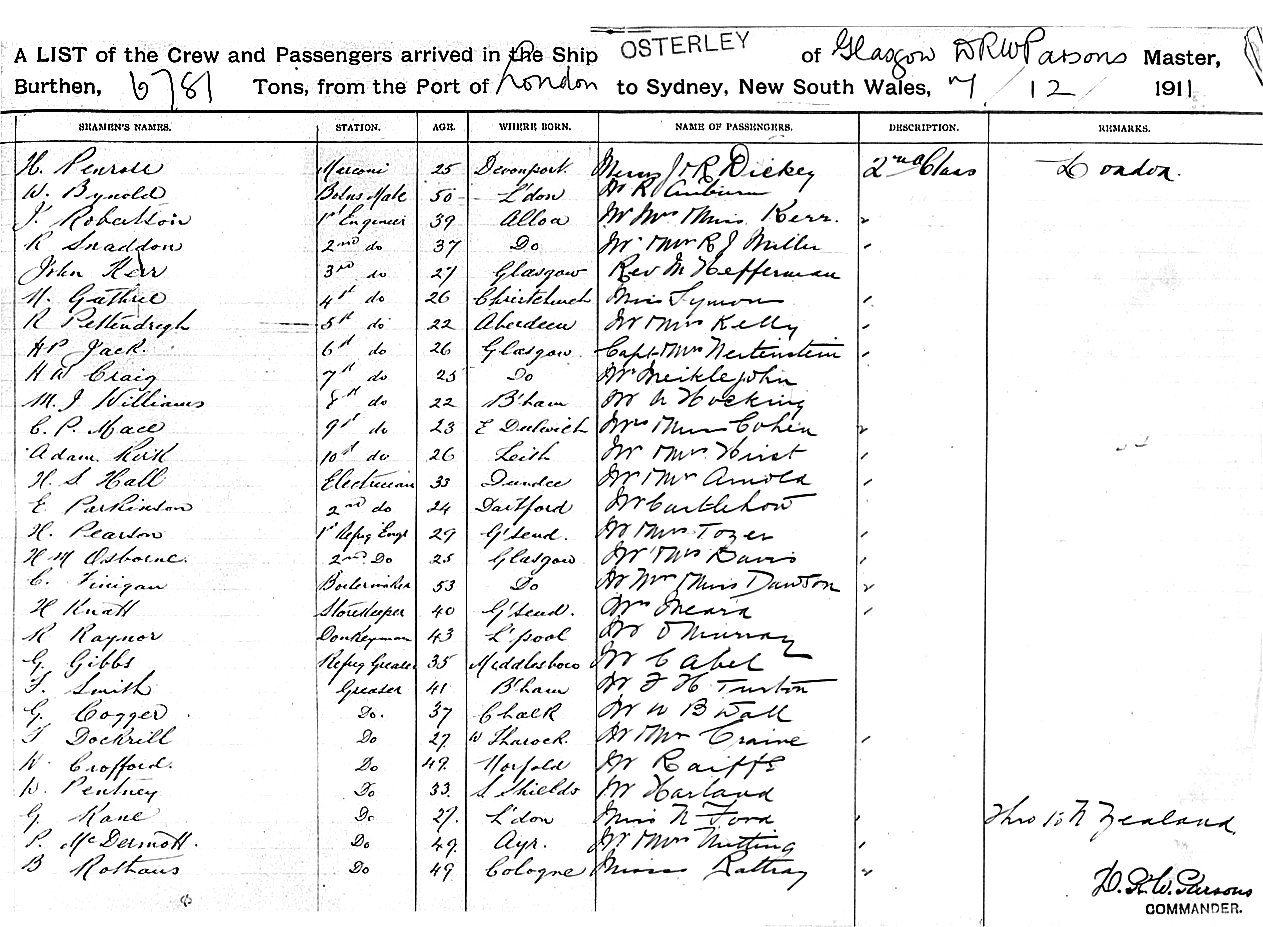 A LIST of the Crew and Passengers arrived in the Ship OSTERLEY of Glasgow D R W Parsons Master,
Burthen, 6781 Tons, from the Port of London to Sydney, New South Wales, 7/12/1911
SEAMEN'S NAMES. STATION. AGE. WHERE BORN. NAME OF PASSENGERS. DESCRIPTION. REMARKS.
H. Penrose Marconi 25 Devonport. Messrs J & R Dickey 2nd Class London.
W. Bynold Bosns Mate 50 L'don Mr R
J. Robertson 1st Engineer 39 Alloa Mr Mrs & Miss Kerr. "
R Snaddon 2nd do 37 Do Mr & Mrs R J Miller "
John Kerr 3rd do 27 Glasgow Rev M Hefferman
N. Guthrie 4th do 26 Christchurch Miss Symon "
R Pettendrigh 5th do 22 Aberdeen Mr & Mrs Kelly "
H P Jack. 6th do 26 Glasgow. Capt & Mrs "
H W Craig 7th do 25 Do Mr Meiklejohn
M. J Williams 8th do 22 B'ham Mr Hocking
C. P. Mace 9th do 23 E Dulwich Mrs & Miss Cohen "
Adam Kirk 10th do 26 Leith Mr & Mrs Hirst "
H. S Hall Electrician 33 Dundee Mr & Mrs Arnold "
E Parkinson 2nd do 24 Dartford Mr
H. Pearson 1st Refrig Engr 29 G'send. Mr & Mrs Tozer "
H M Osborne. 2nd Do 25 Glasgow Mr & Mrs Davis "
C. Finigan Boilermaker 53 Do Mr Mrs & Miss Dawson "
H Knatt Storekeeper 40 G'send. Mrs Meara "
R Raynor Donkeyman 43 L'pool Mr O Murray
G. Gibbs Refrig Greaser 35 Middlesboro Mr C Abel
F. Smith Greaser 41 B'ham Mr F H Turton
G. Cogger Do. 37 Chalk Mr W B Wall
F Dockrill Do 27 W Thurock. Mr & Mrs Craine "
W Crofford. Do 49. Norfold Mr
W. Pentney Do 33. S Shields Mr Harland
G. Kane Do 27. L'don Miss N Ford " Thro to N Zealand
P. McDermott. Do 49. Ayr. Mr & Mrs Nutting "
B Rothaus Do 49 Cologne Misses Rattray "
D. R. W. Parsons
COMMANDER.